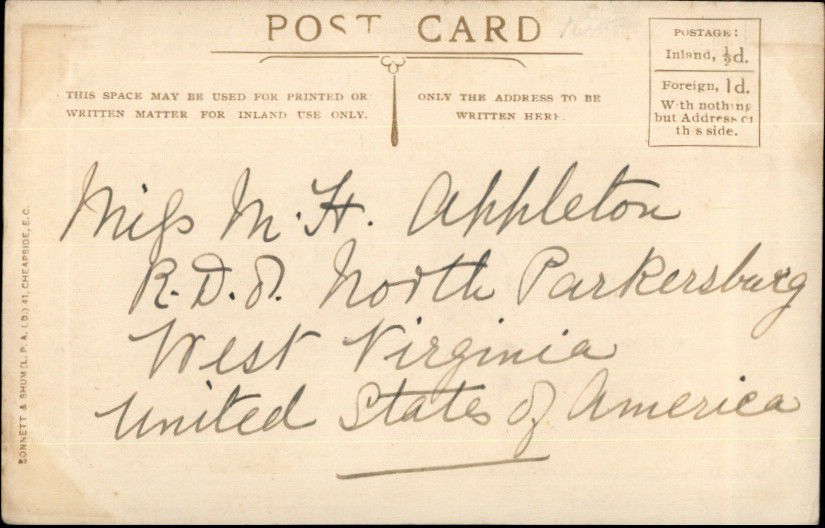 POST CARD
POSTAGE:
Inland, ½d.
Foreign, 1d.
With nothing
but Address on
this side.
THIS SPACE MAY BE USED FOR PRINTED OR
WRITTEN MATTER FOR INLAND USE ONLY.
ONLY THE ADDRESS TO BE
WRITTEN HERE.
Miss M. H. Appleton
R. D. 8. North Parkersburg
West Virginia
United States of America
BONNETT & SHUM (L. P. A. LD.) 41, CHEAPSIDE, E.C.